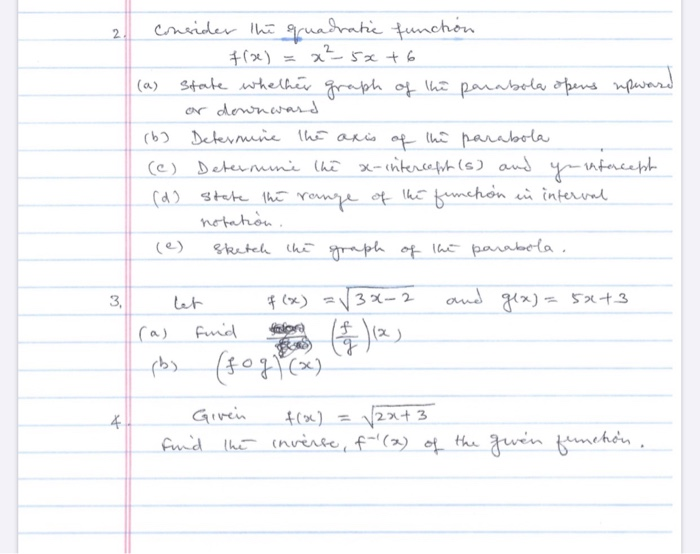 2. Consider the quadratic function
f(x) = x² - 5x + 6
(a) State whether graph of the parabola opens upward
or downward
(b) Determine the axis of the parabola
(c) Determine the x-intercept(s) and y-intercept
(d) State the range of the function in interval
notation.
(e) Sketch the graph of the parabola.
3. Let f(x) = √(3x-2) and g(x) = 5x+3
(a) Find (f/g)(x)
(b) (f∘g)(x)
4. Given f(x) = √(2x+3)
Find the inverse, f⁻¹(x) of the given function.